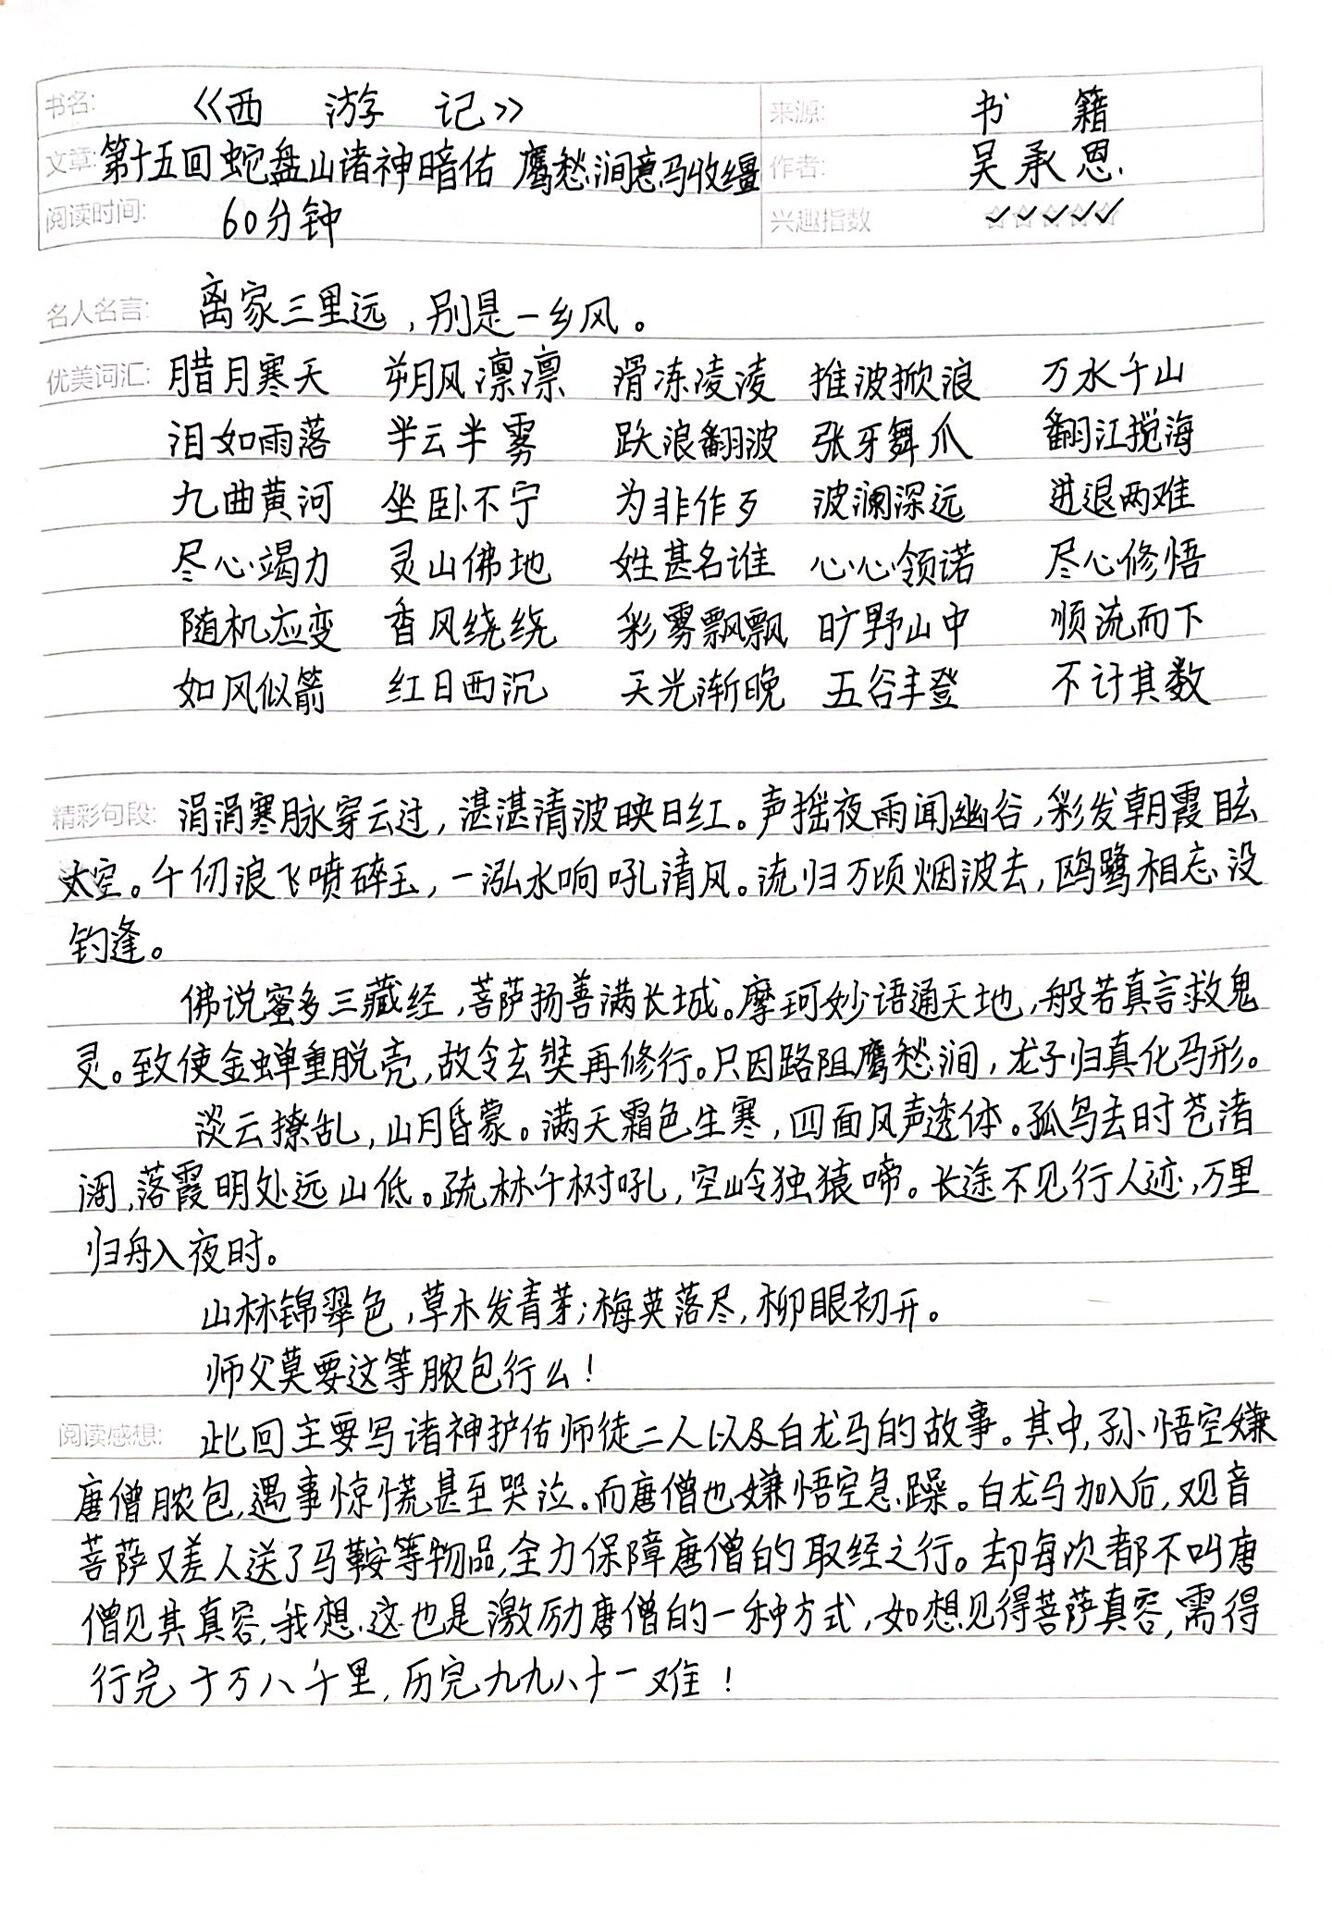 书名: 《西游记》 来源: 书籍
文章: 第十五回蛇盘山诸神暗佑 鹰愁涧意马收缰 作者: 吴承恩.
阅读时间: 60分钟 兴趣指数 ✓✓✓✓✓
名人名言: 离家三里远,别是一乡风。
优美词汇: 腊月寒天 朔风凛凛 滑冻凌凌 推波掀浪 万水千山
泪如雨落 半云半雾 跃浪翻波 张牙舞爪 翻江搅海
九曲黄河 坐卧不宁 为非作歹 波澜深远 进退两难
尽心竭力 灵山佛地 姓甚名谁 心心领诺 尽心修悟
随机应变 香风绕绕 彩雾飘飘 旷野山中 顺流而下
如风似箭 红日西沉 天光渐晚 五谷丰登 不计其数
精彩句段: 涓涓寒脉穿云过,湛湛清波映日红。声摇夜雨闻幽谷,彩发朝霞眩
太空。千仞浪飞喷碎玉,一泓水响吼清风。流归万顷烟波去,鸥鹭相忘没
钓逢。
佛说蜜多三藏经,菩萨扬善满长城。摩珂妙语通天地,般若真言救鬼
灵。致使金蝉重脱壳,故令玄奘再修行。只因路阻鹰愁涧,龙子归真化马形。
淡云撩乱,山月昏蒙。满天霜色生寒,四面风声透体。孤鸟去时苍渚
阔,落霞明处远山低。疏林千树吼,空岭独猿啼。长途不见行人迹,万里
归舟入夜时。
山林锦翠色,草木发青芽;梅英落尽,柳眼初开。
师父莫要这等脓包行么!
阅读感想: 此回主要写诸神护佑师徒二人以及白龙马的故事。其中,孙悟空嫌
唐僧脓包,遇事惊慌甚至哭泣。而唐僧也嫌悟空急躁。白龙马加入后,观音
菩萨又差人送了马鞍等物品,全力保障唐僧的取经之行。却每次都不叫唐
僧见其真容,我想这也是激励唐僧的一种方式,如想见得菩萨真容,需得
行完十万八千里,历完九九八十一难!